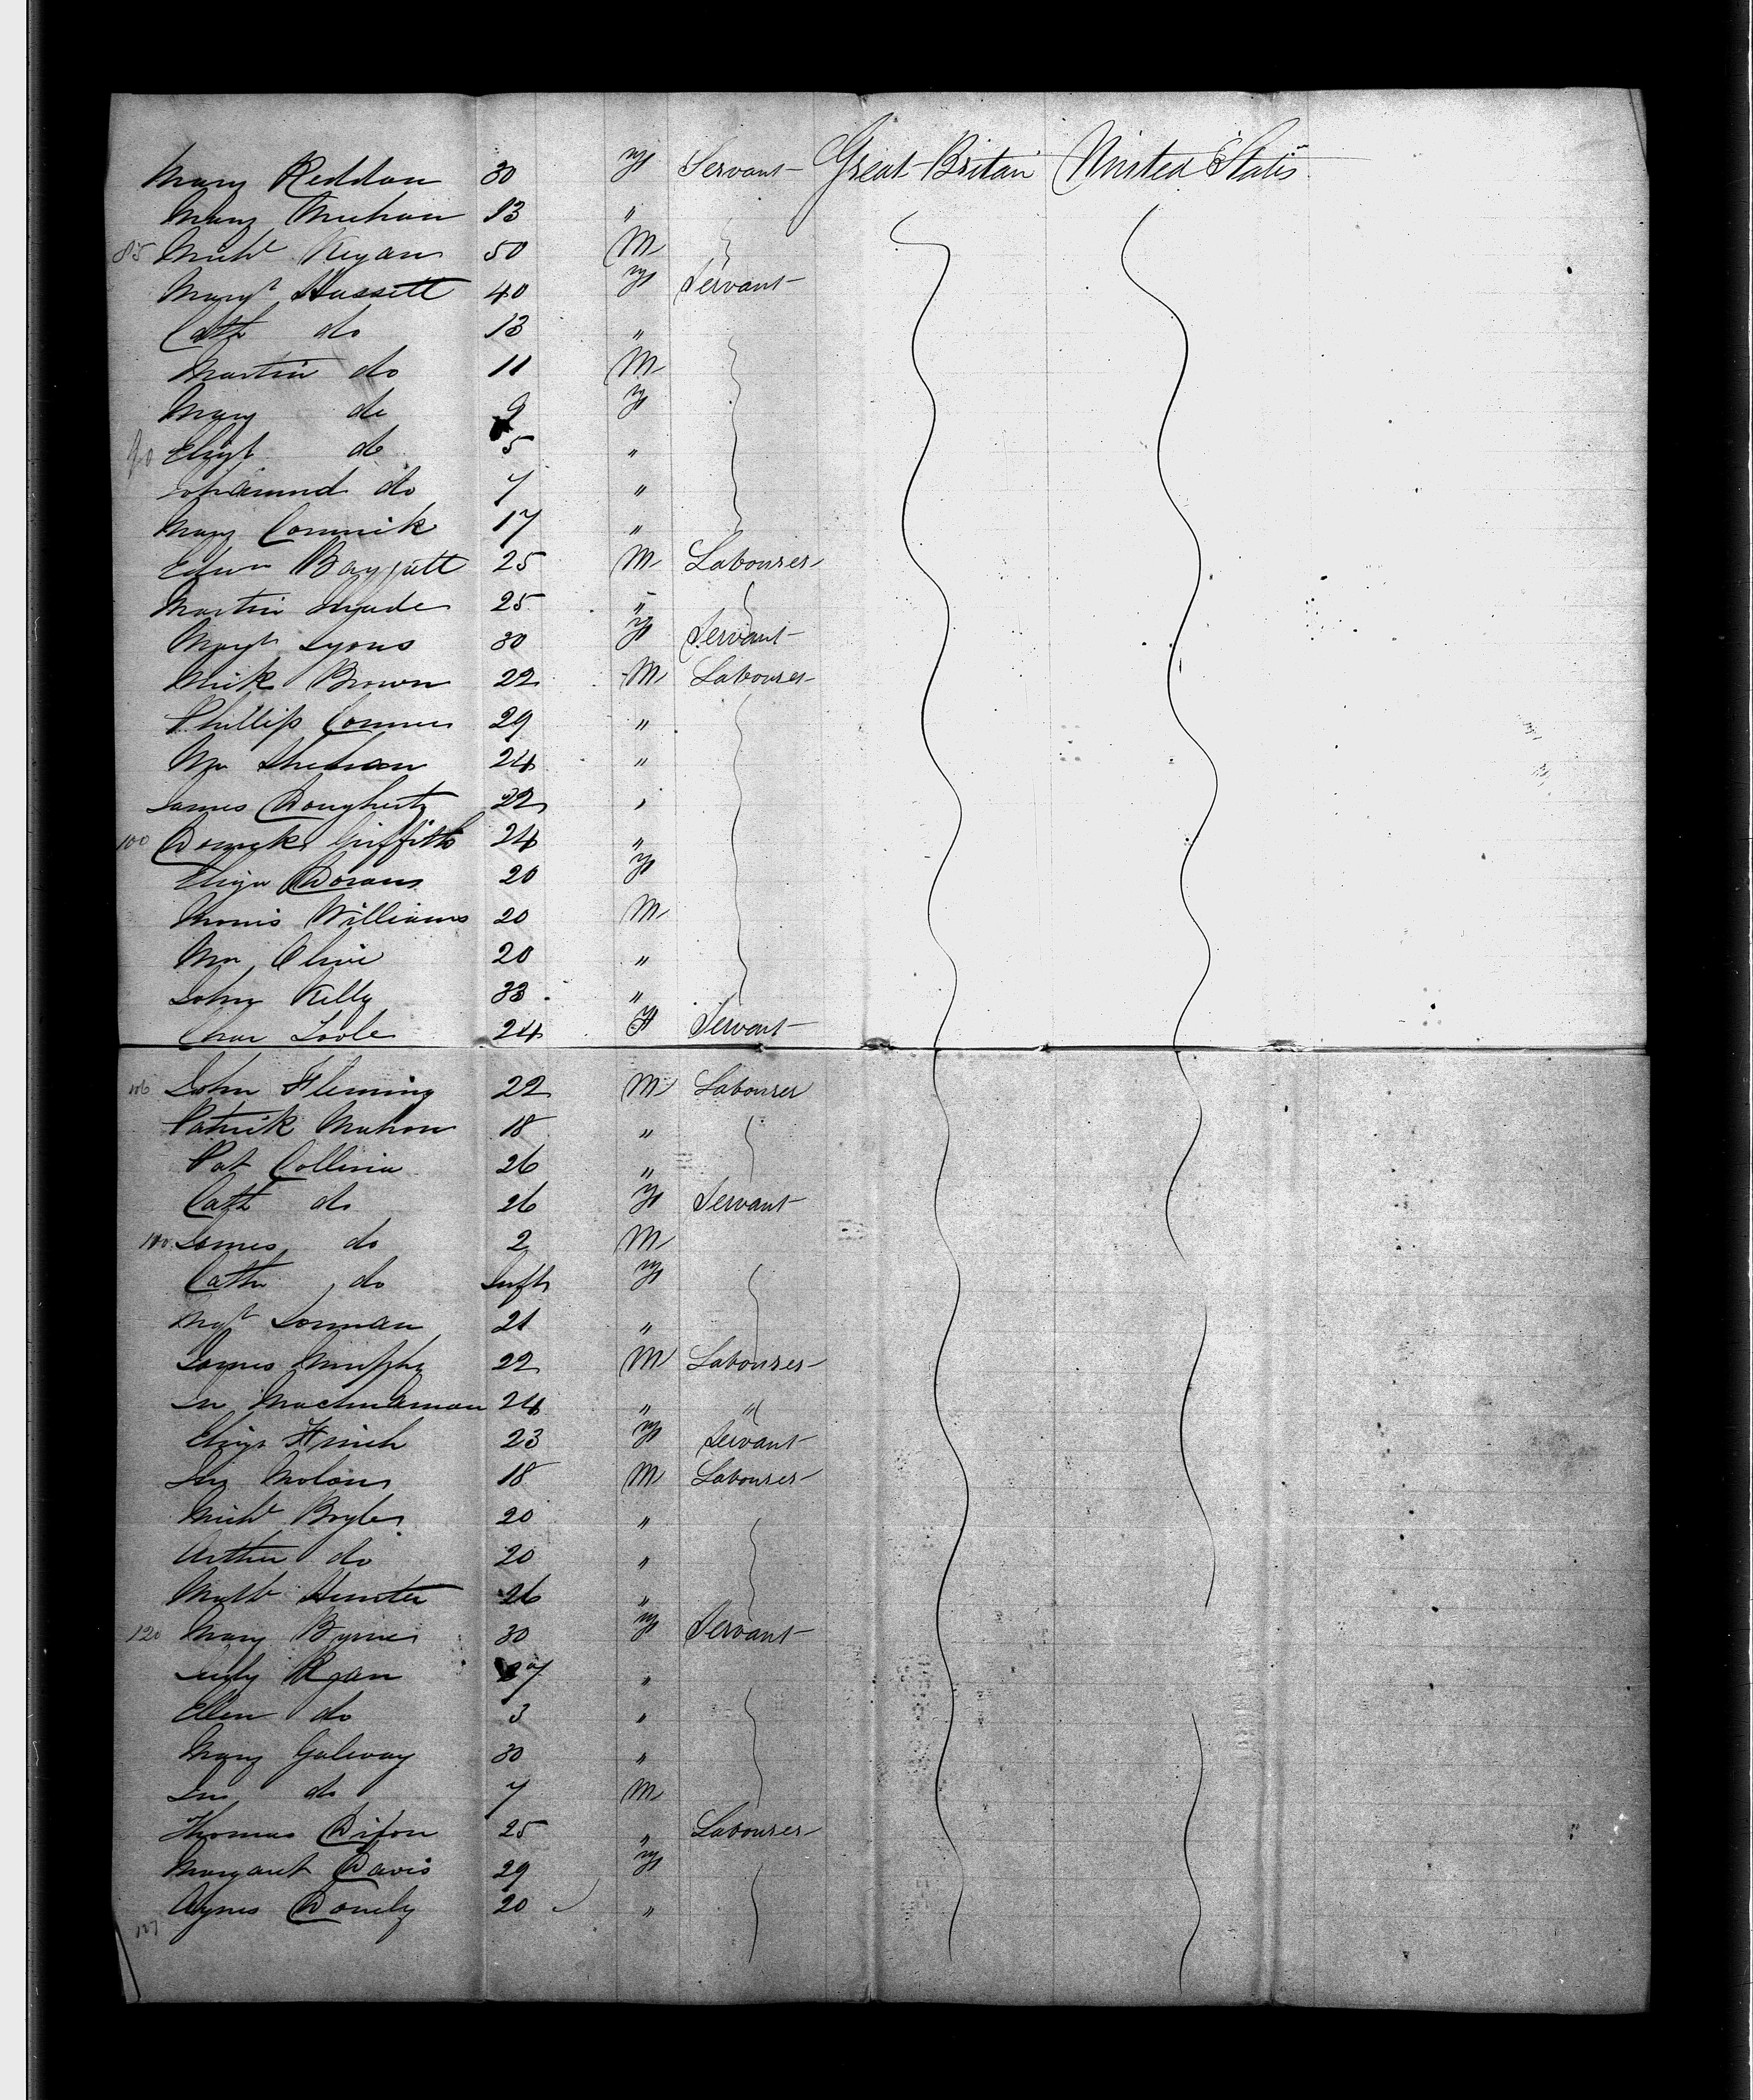 Mary Reddan 30 " Servant Great Britain United States
Mary Meehan 13 "
85 Michl Regan 50 M
Margt Hassett 40 F Servant
Cath do 13 "
Martin do 11 M
Mary do 9 F
90 Eliza do 5 "
do 7 "
Mary Cormick 17 "
Edwd 25 M Labourer
Martin 25 "
Margt Lyons 30 F Servant
Mick Brown 22 M Labourer
Phillip Connors 29 "
Wm Sheehan 24 "
James Dougherty 22 "
100 Domick Griffiths 24 "
Eliza Dorans 20 F
Morris Williams 20 M
Wm Olive 20 "
John Kelly 33 "
Char Toole 24 F Servant
106 John Fleming 22 M Labourer
Patrick Mahon 18 "
Pat Collins 26 "
Cath do 26 F Servant
110 James do 2 M
Cath do Inft F
Mgt 21 "
James Murphy 22 M Labourer
Jn Macnamara 24 " "
Eliza Finch 23 F Servant
Nolan 18 M Labourer
Michl Boyle 20 "
Arthur do 20 "
Hunter 26 "
120 Mary Byrne 30 F Servant
Judy Ryan 27 "
Ellen do 3 "
Mary Galway 30 "
Jno do 7 M
Thomas Dixon 25 " Labourer
Margaret Davis 29 F
Agnes Donely 20 "
127